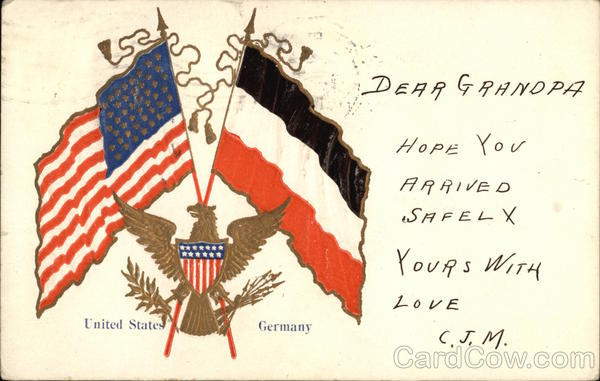 DEAR GRANDPA
HOPE YOU
ARRIVED
SAFELY
YOURS WITH
LOVE
C.J.M.
United States
Germany
CardCow.com